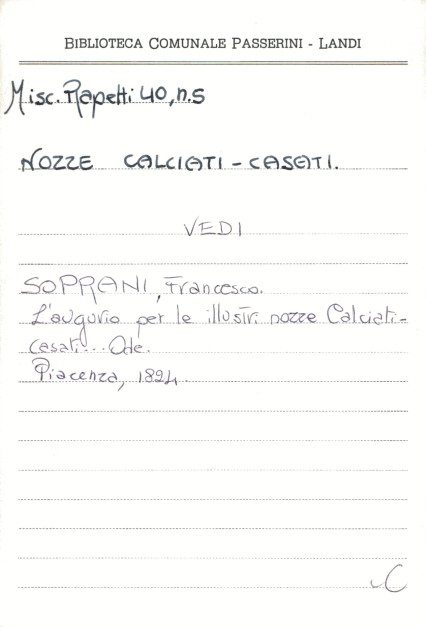 BIBLIOTECA COMUNALE PASSERINI - LANDI
Misc. Rapetti 40, n.5
NOZZE CALCIATI - CASATI.
VEDI
SOPRANI, Francesco.
L'augurio per le illustri nozze Calciati-
Casati... Ode.
Piacenza, 1894.